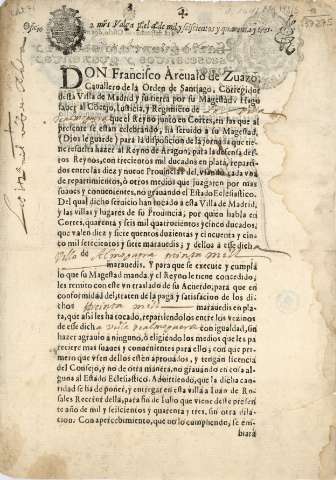 2 mrs Valga para el año de mil y seiscientos y quarenta y tres.
DON Francisco Areualo de Zuazo,
Cauallero de la Orden de Santiago, Corregidor
desta Villa de Madrid y su tierra por su Magestad. Hago
saber al Côcejo, Iusticia, y Regimiento de
que el Reyno junto en Cortes, en las que al
presente se estan celebrando, ha seruido a su Magestad,
(Dios le guarde) para la disposicion de la jornada que tie-
ne resuelta hazer al Reyno de Aragon, para la defensa des-
tos Reynos, con trecientos mil ducados en plata, reparti-
dos entre las diez y nueue Prouincias del, vsando cada vna
de repartimientos, ò otros medios que juzgaren por mas
suaues y conuenientes, no grauando el Estado Eclesiastico.
Del qual dicho seruicio han tocado a esta Villa de Madrid,
y las villas y lugares de su Prouincia, por quien habla en
Cortes, quarenta y seis mil quatrocientos y cinco ducados,
que valen diez y siete quentos dozientas y cincuenta y cin-
co mil setecientos y siete marauedis; y dellos a esse dicha
Villa de Almoguera treinta mill
marauedis. Y para que se execute y cumpla
lo que su Magestad manda, y el Reyno le tiene concedido,
les remito con este vn traslado de su Acuerdo, para que en
conformidad del, traten de la paga y satisfacion de los di-
chos treinta mill marauedis en pla-
ta, que assi les ha tocado, repartiendolos entre los vezinos
de esse dicha villa de almoguera con igualdad, sin
hazer agrauio a ninguno, ò eligiendo los medios que les pa-
reciere mas suaues y conuenientes para ello; con que pri-
mero que vsen dellos estèn aprouados, y tengan licencia
del Consejo, y no de otra manera, no grauando en cosa al-
guna al Estado Eclesiastico. Aduirtiendo, que la dicha can-
tidad se ha de poner, y entregar en esta villa a Iuan de Ro-
sales Receptor della, para fin de Iulio que viene deste presen-
te año de mil y seiscientos y quarenta y tres, sin otra dila-
cion. Con apercebimiento, que no lo cumpliendo, se em-
biarà